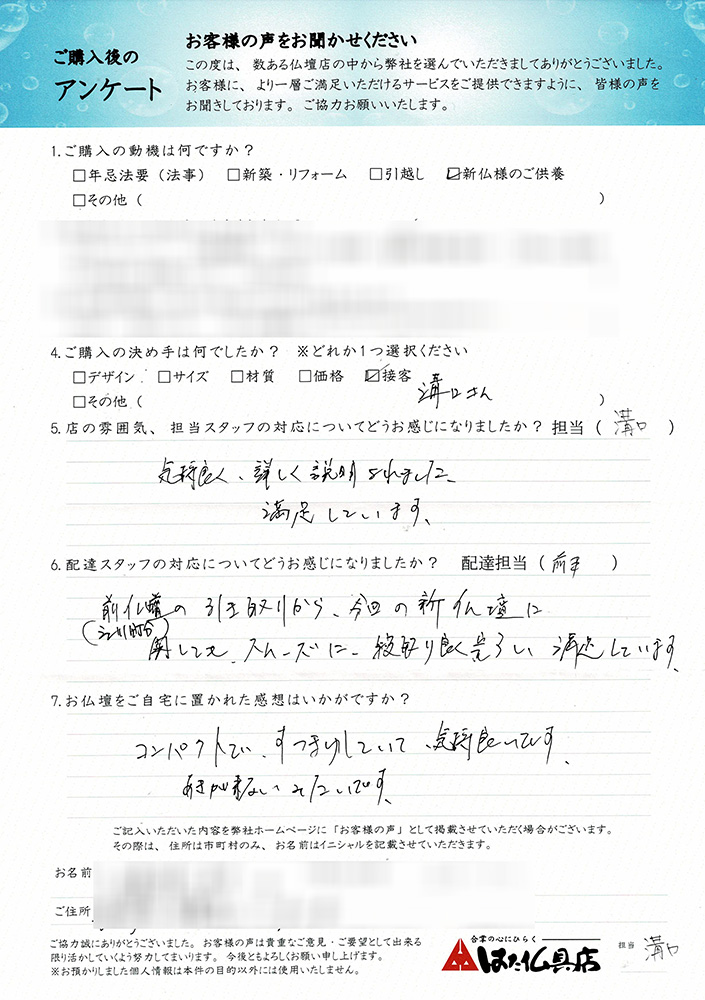 ご購入後の
アンケート
お客様の声をお聞かせください
この度は、数ある仏壇店の中から弊社を選んでいただきましてありがとうございました。
お客様に、より一層ご満足いただけるサービスをご提供できますように、皆様の声を
お聞きしております。ご協力お願いいたします。
1.ご購入の動機は何ですか？
□年忌法要（法事） □新築・リフォーム □引越し ☑新仏様のご供養
□その他（ ）
4.ご購入の決め手は何でしたか？ ※どれか1つ選択ください
□デザイン □サイズ □材質 □価格 ☑接客
□その他（ 溝口さん ）
5.店の雰囲気、担当スタッフの対応についてどうお感じになりましたか？担当（ 溝口 ）
気持良く、詳しく説明されました、
満足しています、
6.配達スタッフの対応についてどうお感じになりましたか？ 配達担当（ ）
前仏壇の引き取りから、今回の新仏壇に
関しても、スムーズに、段取り良く完了し、満足しています、
7.お仏壇をご自宅に置かれた感想はいかがですか？
コンパクトで、すっきりしていて、気持良いです、
あきが来ないみたいです、
ご記入いただいた内容を弊社ホームページに「お客様の声」として掲載させていただく場合がございます。
その際は、住所は市町村のみ、お名前はイニシャルを記載させていただきます。
お名前
ご住所
ご協力誠にありがとうございました。お客様の声は貴重なご意見・ご要望として出来る
限り活かしていくよう努力してまいります。今後ともよろしくお願い申し上げます。
※お預かりしました個人情報は本件の目的以外には使用いたしません。
合掌の心にひらく
はた仏具店
担当 溝口